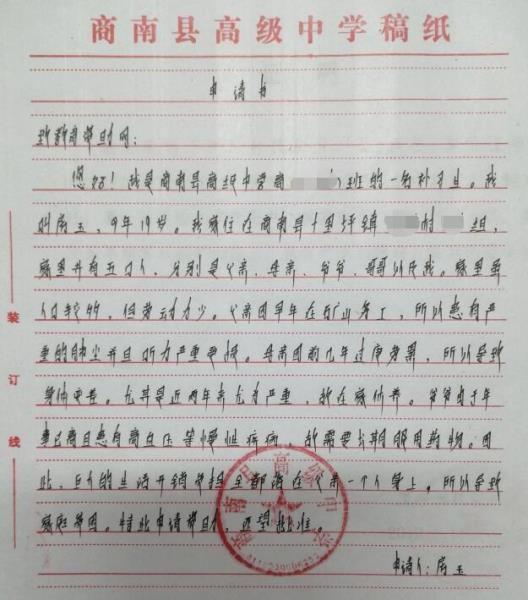 商南县高级中学稿纸
申请书
致教育帮扶网：
您好！我是商南县高级中学高班的一名补习生。我
叫房玉，今年19岁。我家住在商南县十里坪镇村组，
家里共有五口人，分别是父亲、母亲、爷爷、哥哥以及我。家里虽
人口较多，但劳动力少。父亲因早年在矿山务工，所以患有严
重的肺尘并且听力严重受损。母亲因前几年过度劳累，所以导致
身体更差。尤其是近两年来尤为严重，故在家休养。爷爷由于年
事已高且患有高血压等慢性疾病，故需要长期服用药物。因
此，巨大的生活开销重担全都落在父亲一个人肩上。所以导致
家庭贫困。特此申请，还望批准。
申请人：房玉
装
订
线